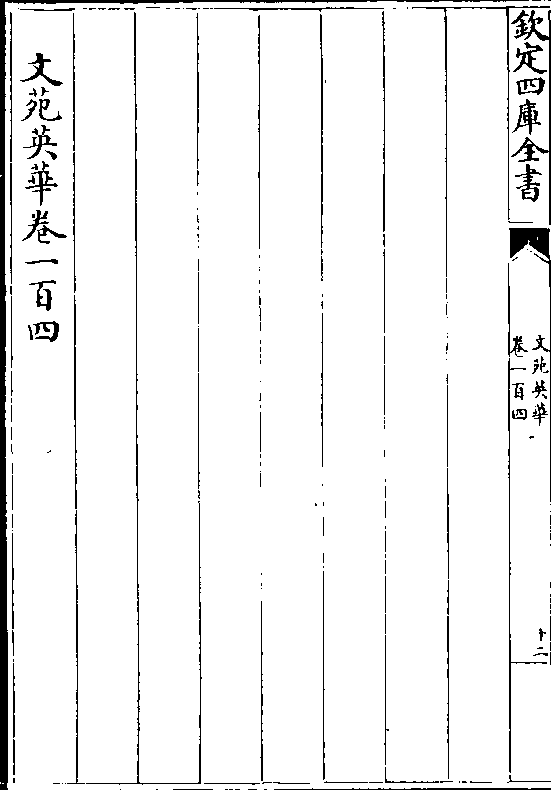 欽定四庫全書
文苑英華
卷一百四
十二
文苑英華卷一百四